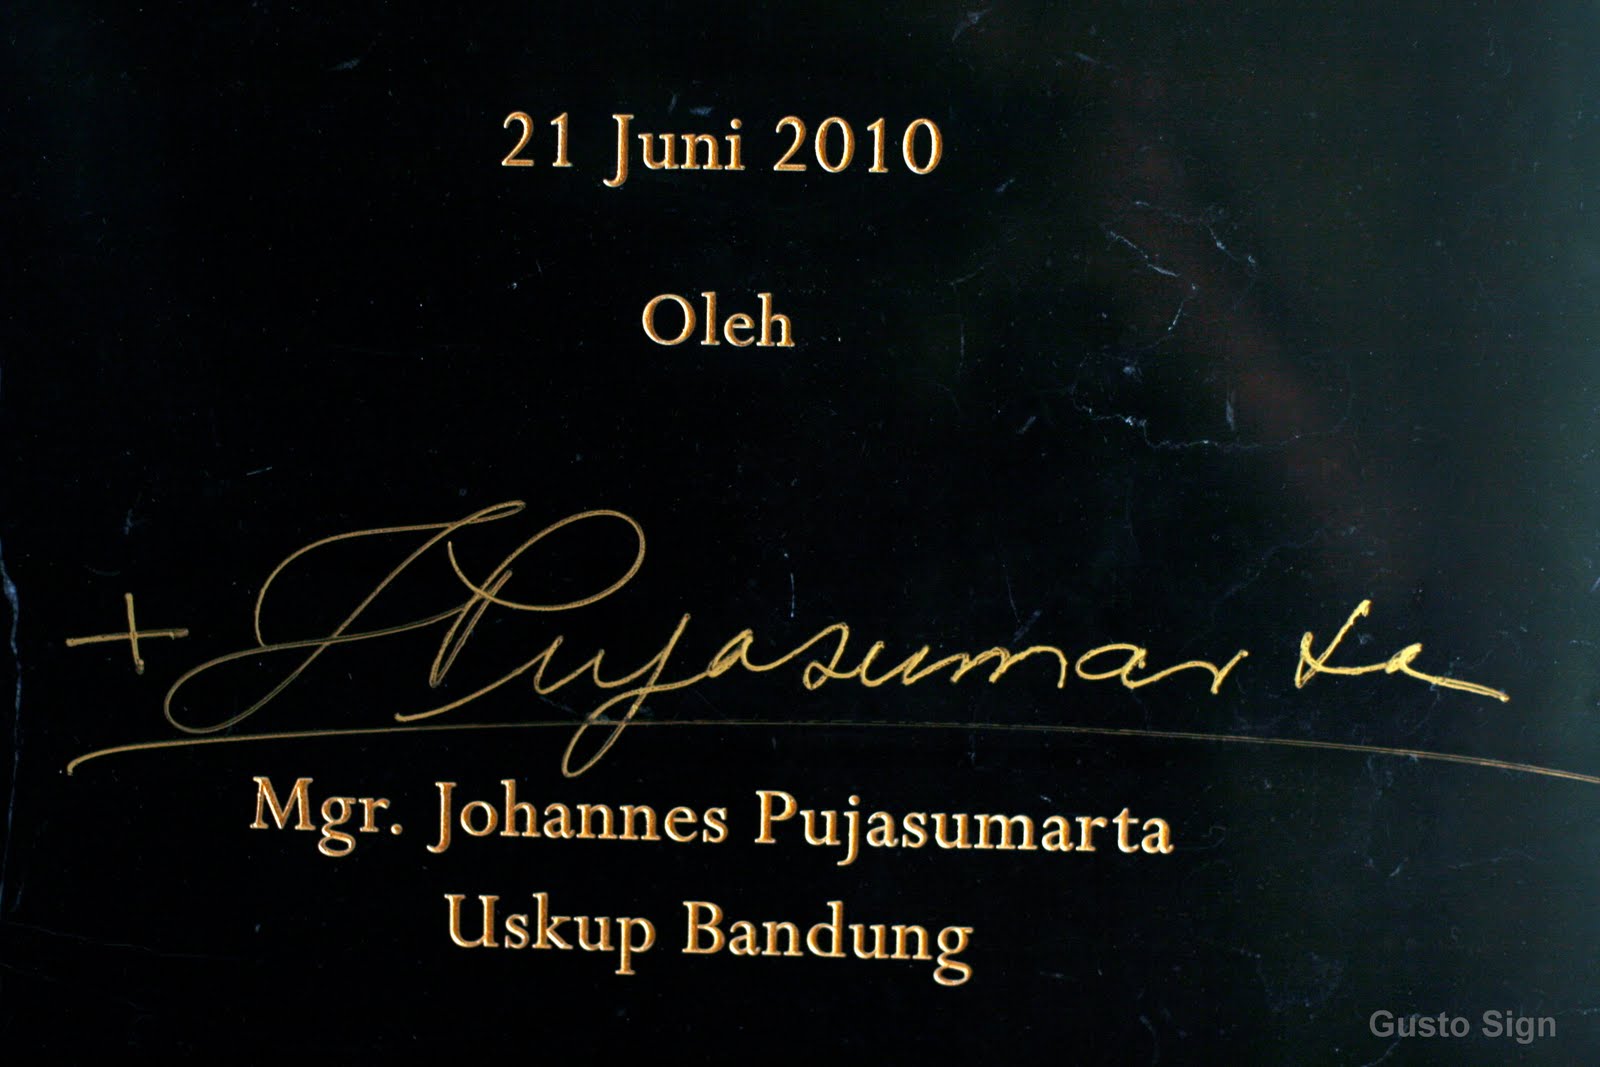 21 Juni 2010
Oleh
+ J Pujasumarta
Mgr. Johannes Pujasumarta
Uskup Bandung
Gusto Sign